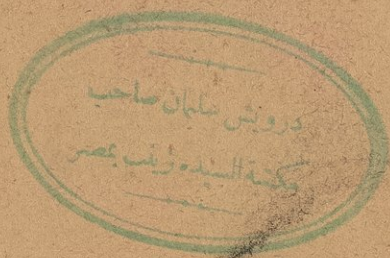 درويش سليمان صاحب
مكتبة السيده زينب بمصر